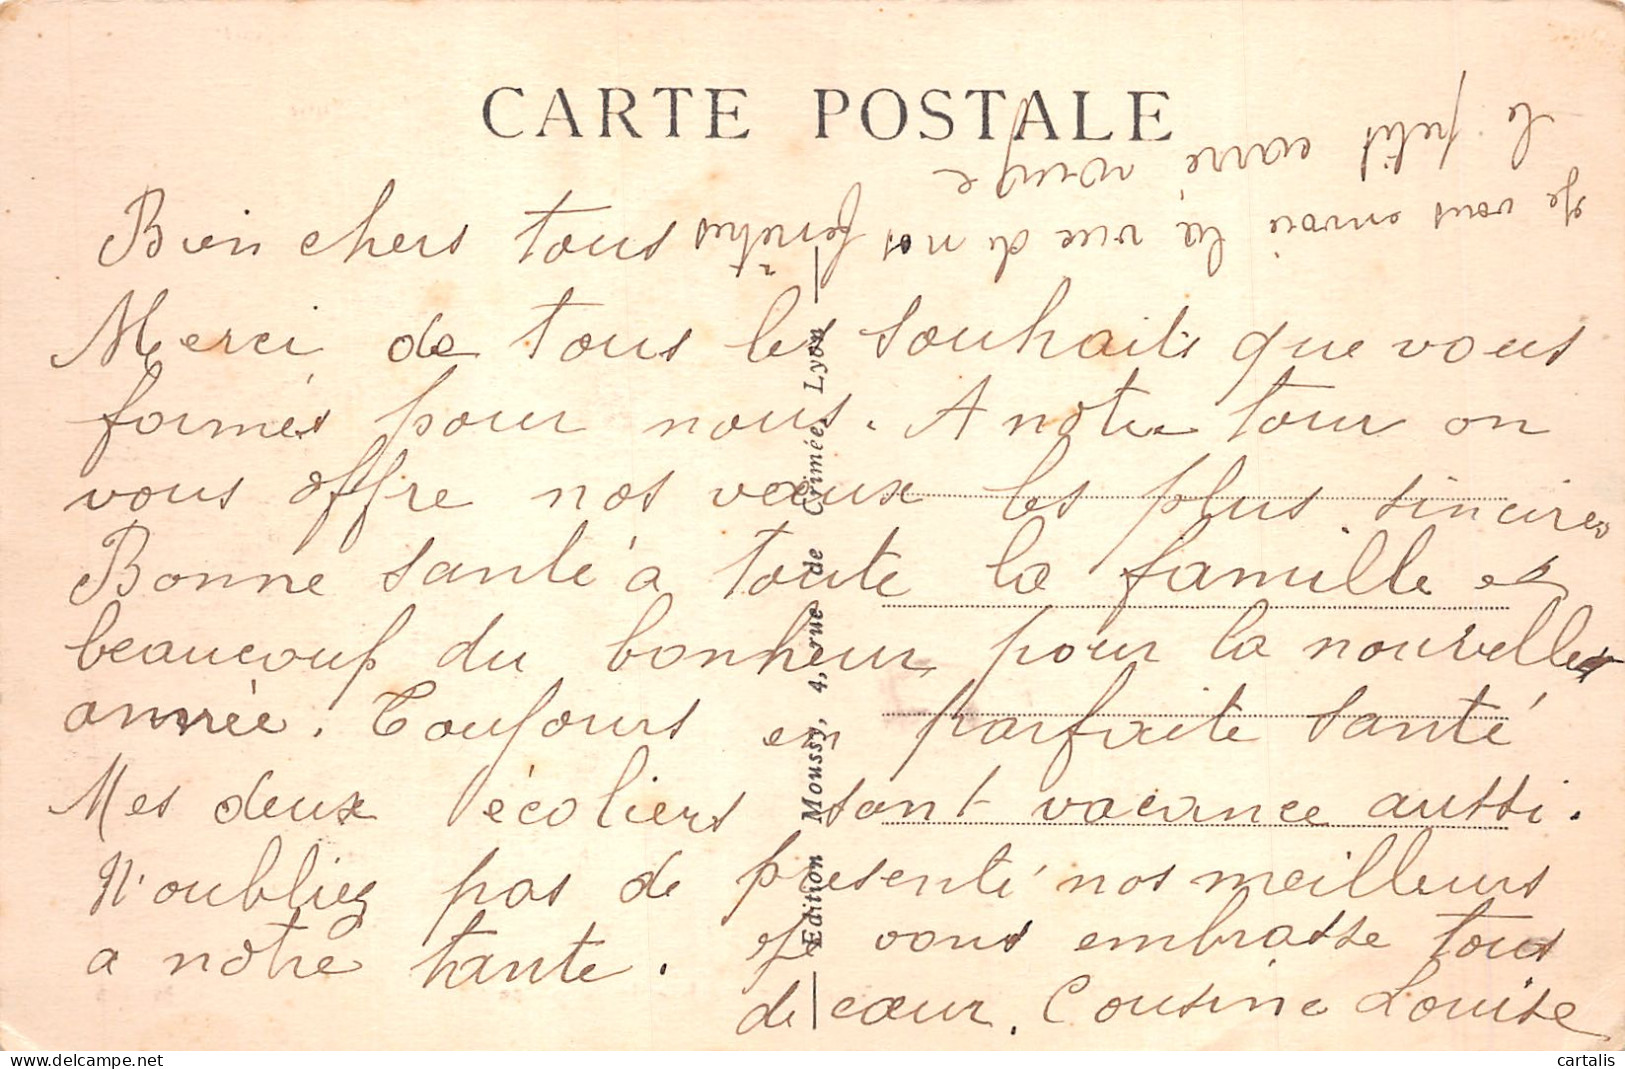 CARTE POSTALE
Je vous envoie la vue de nos fenêtres
le petit carré rouge
Bien chers tous
Merci de tous les souhaits que vous
formés pour nous. A notre tour on
vous offre nos vœux les plus sincires
Bonne santé à toute la famille et
beaucoup du bonheur pour la nouvelle
année. Toujours en parfaite santé
Mes deux écoliers sont vacance aussi.
N'oubliez pas de presenté nos meilleurs
a notre tante. Je vous embrasse tous
de cœur. Cousine Louise
Edition Moussy, 4, rue de Crimée, Lyon
cartalis
delcampe.net